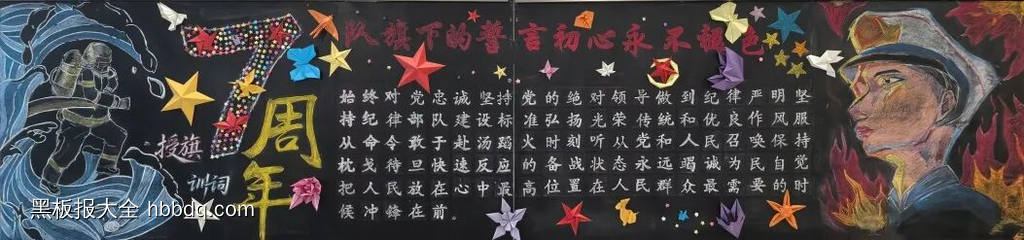 队旗下的誓言初心永不褪色
7周年
授旗
训词
始终对党忠诚坚持党的绝对领导做到纪律严明坚
持纪律部队建设标准弘扬光荣传统和优良作风服
从命令敢于赴汤蹈火时刻听从党和人民召唤保持
枕戈待旦快速反应的备战状态永远竭诚为民自觉
把人民放在心中最高位置在人民群众最需要的时
候冲锋在前。
黑板报大全 hbbdg.com